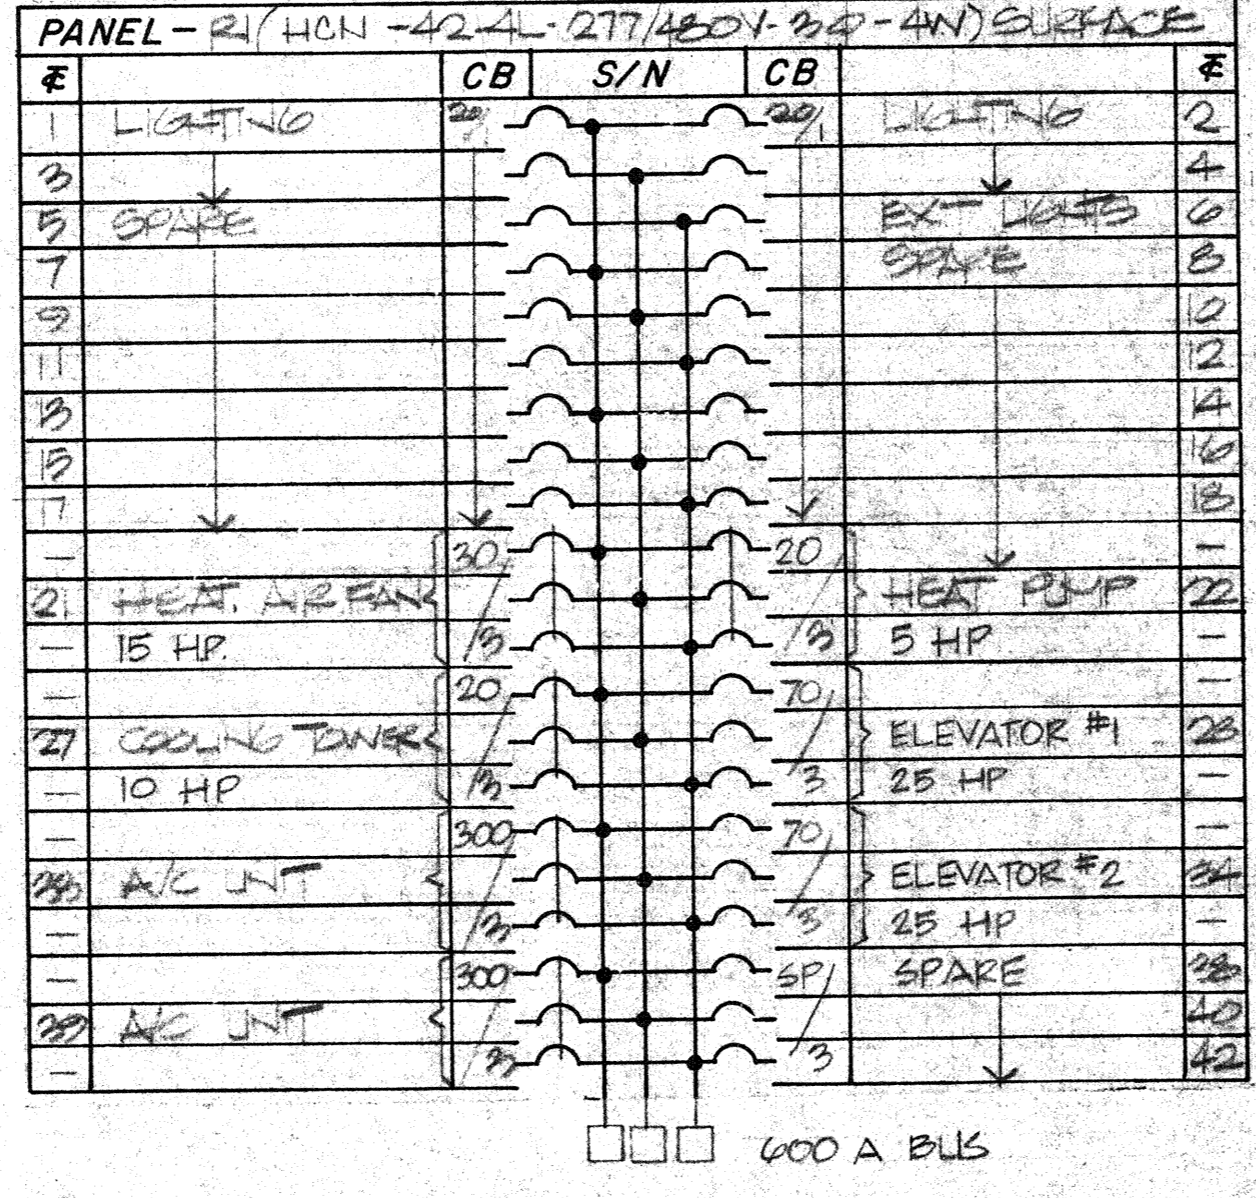 PANEL - R1 (HCN -42-4L- 277/480V-3Ø-4W) SURFACE
℄ CB S/N CB ℄
1 LIGHTING 20/1 20/1 LIGHTING 2
3 4
5 SPARE EXT LIGHTS 6
7 SPARE 8
9 10
11 12
13 14
15 16
17 18
— 30 20 —
21 HEAT. AIR FAN HEAT PUMP 22
— 15 HP. /3 /3 5 HP —
— 20 70 —
27 COOLING TOWER ELEVATOR #1 28
— 10 HP /3 3 25 HP —
— 300 70 —
33 A/C UNIT ELEVATOR #2 34
— /3 3 25 HP —
— 300 SP SPARE 38
39 A/C UNIT 40
— 3 /3 42
600 A BUS